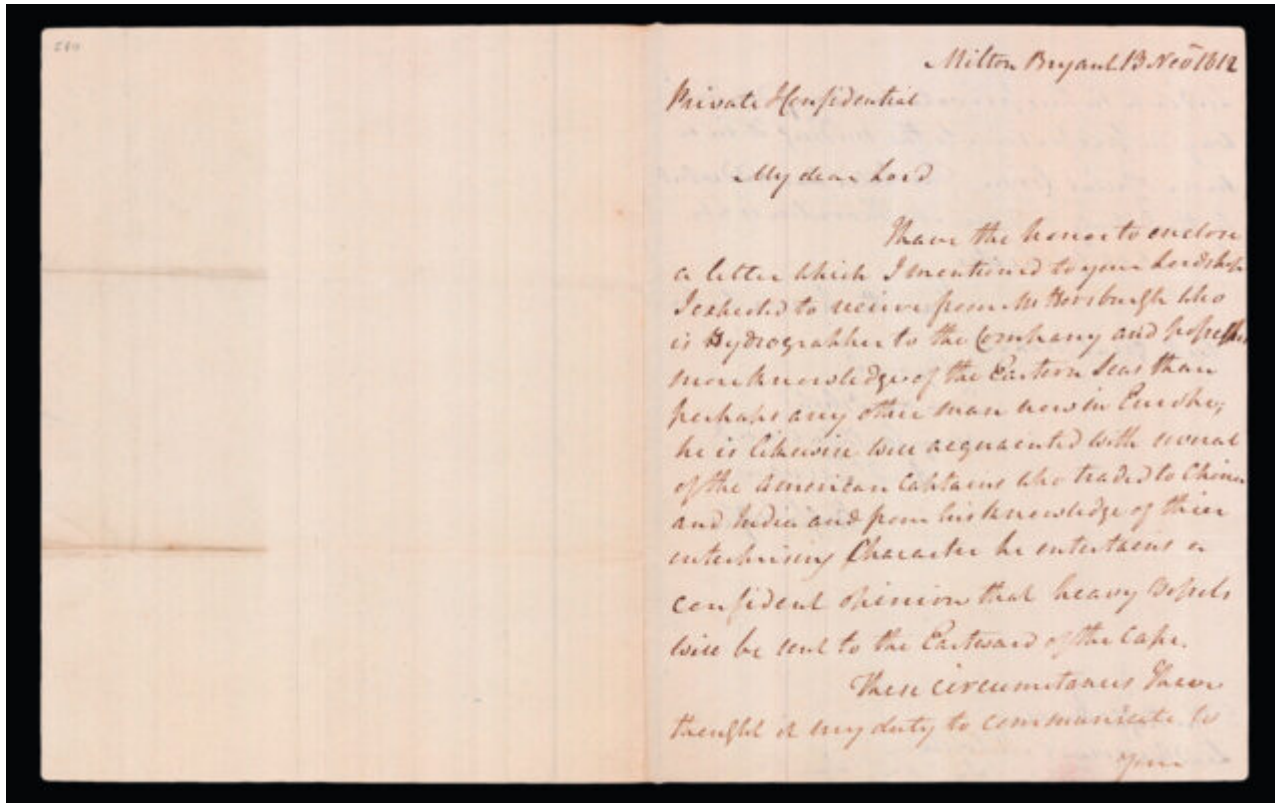 Milton Bryant 13 Nov 1812
Private & Confidential
My dear Lord
I have the honor to enclose
a letter which I mentioned to your Lordship
I expected to receive from Mr Horsburgh who
is Hydrographer to the Company and possesses
more knowledge of the Eastern Seas than
perhaps any other man now in Europe,
he is likewise well acquainted with several
of the American Captains who traded to China
and India and from his knowledge of thier
enterprising Character he entertains a
confident opinion that heavy vessels
will be sent to the Eastward of the Cape.
These circumstances I have
thought it my duty to communicate to
your